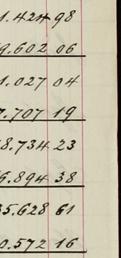 1.424 98
9.602 06
1.027 04
7.707 19
8.734 23
6.894 38
5.628 61
0.572 16